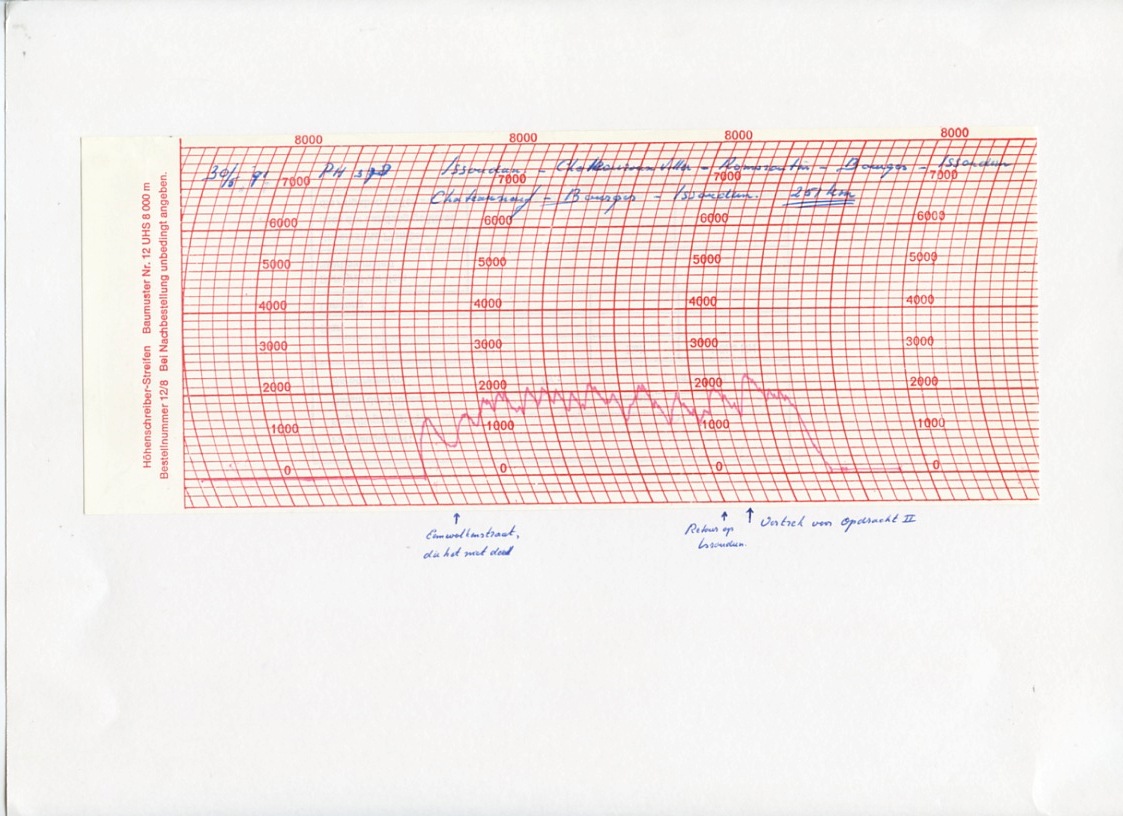 8000 8000 8000 8000
30/5 91 PH Issoudun - - Romorantin - Bourges - Issoudun
7000 7000 7000 7000
Chateauneuf - Bourges - Issoudun. 251 km
6000 6000 6000 6000
5000 5000 5000 5000
4000 4000 4000 4000
3000 3000 3000 3000
2000 2000 2000 2000
1000 1000 1000 1000
0 0 0 0
Höhenschreiber-Streifen Baumuster Nr. 12 UHS 8 000 m
Bestellnummer 12/8 Bei Nachbestellung unbedingt angeben.
Een wolkenstraat,
die het niet deed
Retour op
Issoudun.
Vertrek voor Opdracht II